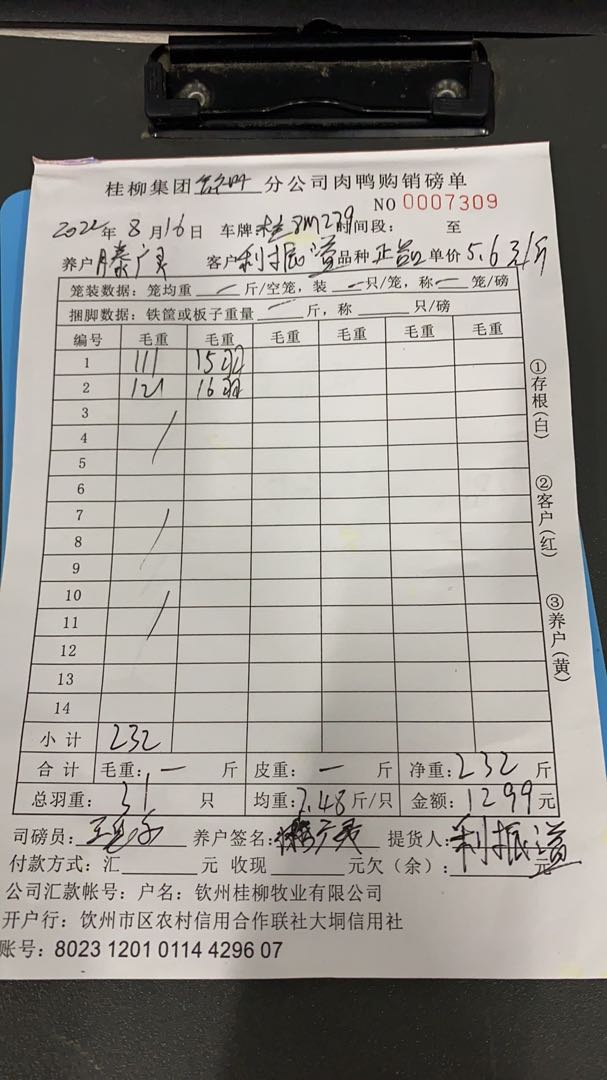 桂柳集团 分公司肉鸭购销磅单
NO 0007309
2022年8月16日 车牌: 桂 时间段: 至
养户 滕广灵 客户 利振溢 品种 正品 单价 5.6元/斤
笼装数据: 笼均重 — 斤/空笼, 装 — 只/笼, 称 — 笼/磅
捆脚数据: 铁筐或板子重量 — 斤, 称 只/磅
编号 毛重 毛重 毛重 毛重 毛重 毛重
1 111 15羽
2 121 16羽
3
4
5
6
7
8
9
10
11
12
13
14
小计 232
合计 毛重: — 斤 皮重: — 斤 净重: 232 斤
总羽重: 31 只 均重: 7.48 斤/只 金额: 1299 元
司磅员: 养户签名: 滕广灵 提货人: 利振溢
付款方式: 汇 元 收现 元欠(余): 元
公司汇款帐号: 户名: 钦州桂柳牧业有限公司
开户行: 钦州市区农村信用合作联社大垌信用社
账号: 8023 1201 0114 4296 07
①存根(白)
②客户(红)
③养户(黄)